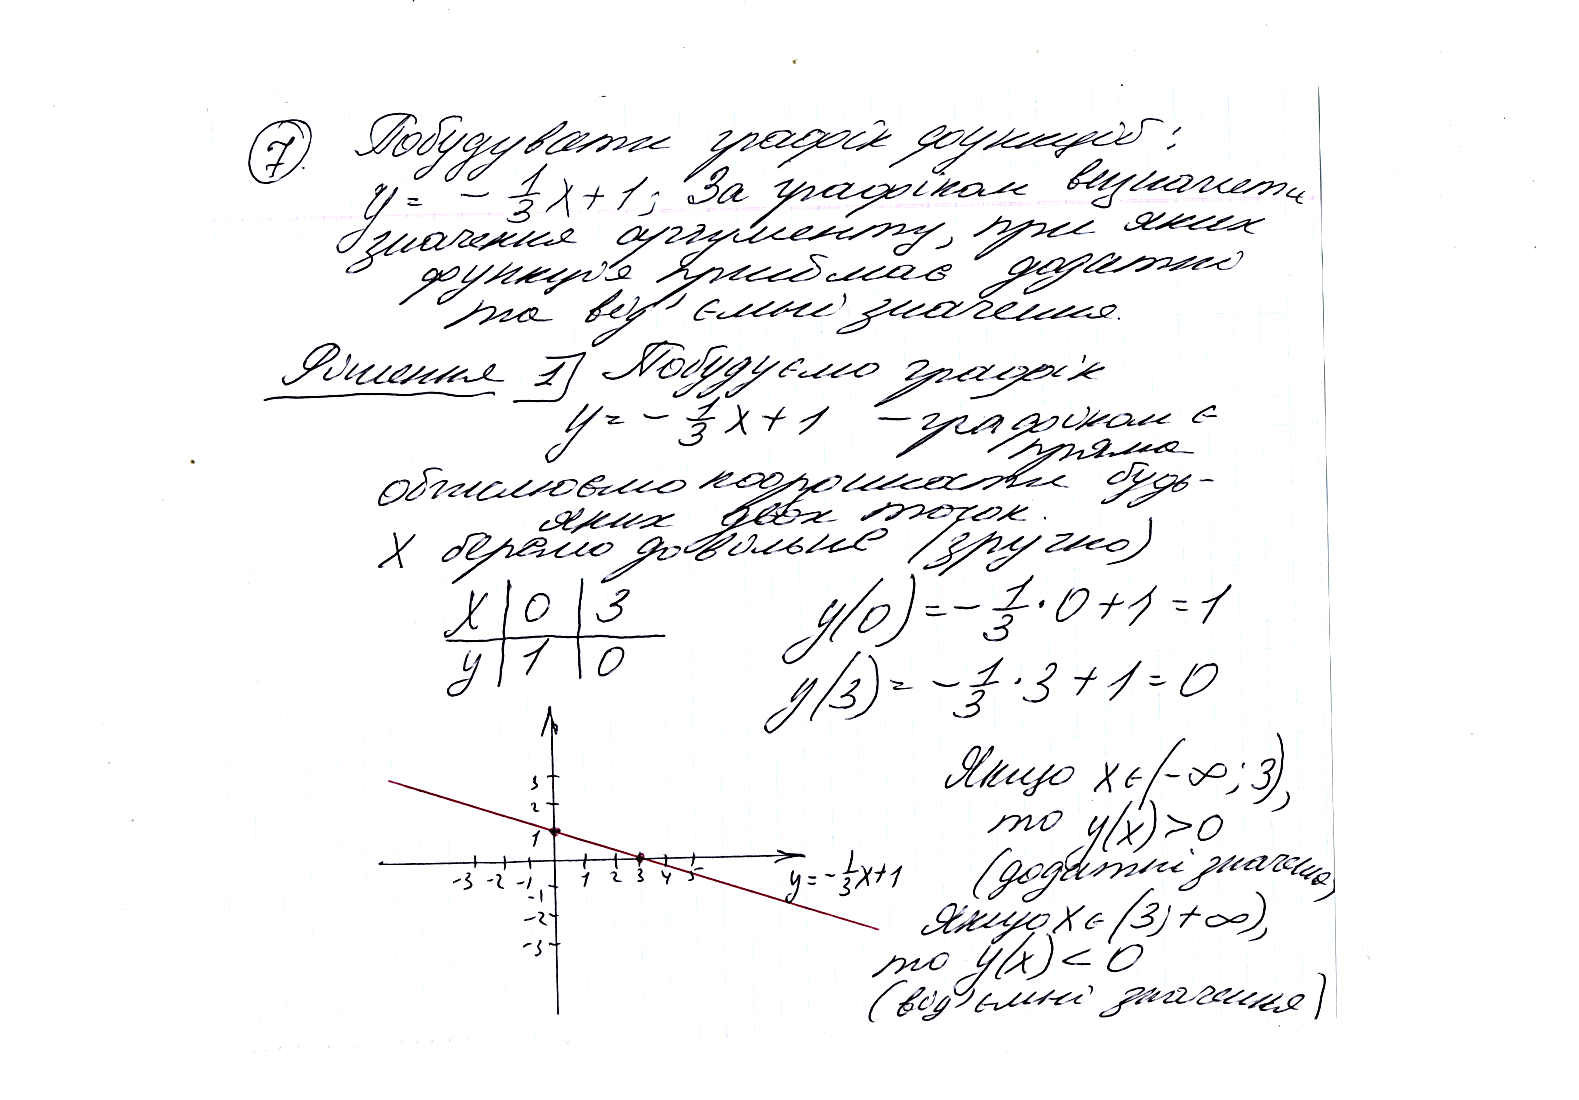 7. Побудувати графік функцій:
y = - 1/3 x + 1; За графіком визначети
значення аргументу, при яких
функція приймає додатні
та від'ємні значення.
Рішення 1] Побудуємо графік
y = - 1/3 x + 1 – графіком є
пряма
обчислюємо координати будь-
яких двох точок.
X беремо довільне (зручно)
X | 0 | 3
y | 1 | 0
y(0) = - 1/3 · 0 + 1 = 1
y(3) = - 1/3 · 3 + 1 = 0
3
2
1
-3 -2 -1 1 2 3 4 5
-1
-2
-3
y = - 1/3 x + 1
Якщо x ∈ (-∞; 3),
то y(x) > 0
(додатні значення)
Якщо x ∈ (3; +∞),
то y(x) < 0
(від'ємні значення)